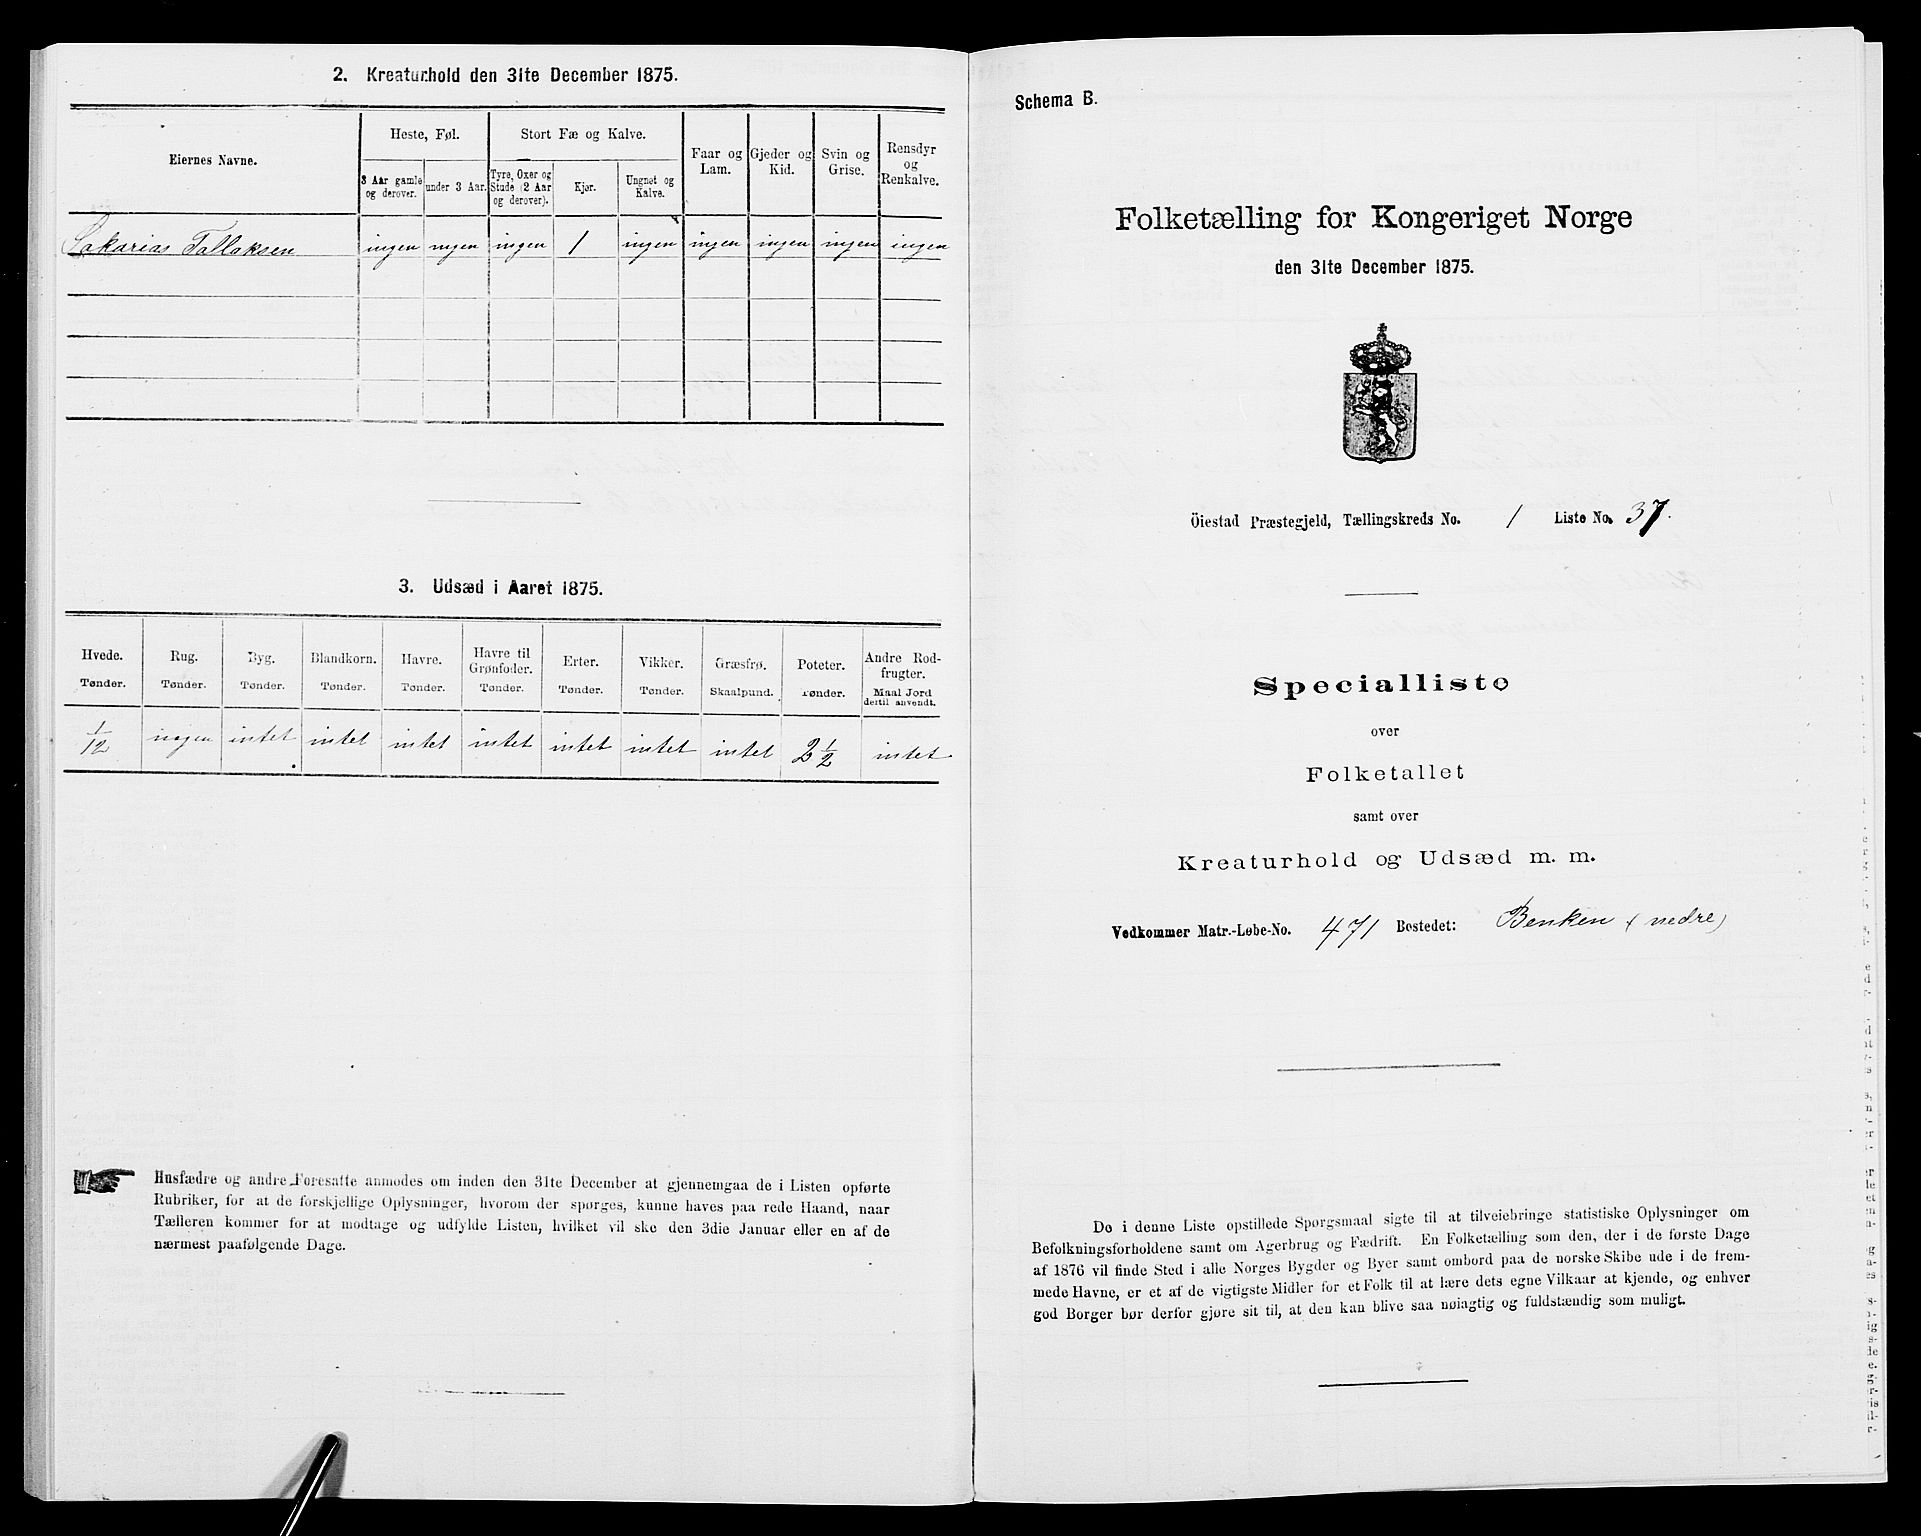 2. Kreaturhold den 31te December 1875.
Eiernes Navne.
Heste, Føl.
Stort Fæ og Kalve.
Faar og Lam.
Gjeder og Kid.
Svin og Grise.
Rensdyr og Renkalve.
3 Aar gamle og derover.
under 3 Aar.
Tyre, Oxer og Stude (2 Aar og derover).
Kjør.
Ungnøt og Kalve.
Sakarias Tallaksen ingen ingen ingen 1 ingen ingen ingen ingen ingen
3. Udsæd i Aaret 1875.
Hvede. Rug. Byg. Blandkorn. Havre. Havre til Grønfoder. Erter. Vikker. Græsfrø. Poteter. Andre Rodfrugter.
Tønder. Tønder. Tønder. Tønder. Tønder. Tønder. Tønder. Tønder. Skaalpund. Tønder. Maal Jord dertil anvendt.
1/12 ingen intet intet intet intet intet intet intet 2 1/2 intet
Husfædre og andre Foresatte anmodes om inden den 31te December at gjennemgaa de i Listen opførte
Rubriker, for at de forskjellige Oplysninger, hvorom der spørges, kunne haves paa rede Haand, naar
Tælleren kommer for at modtage og udfylde Listen, hvilket vil ske den 3die Januar eller en af de
nærmest paafølgende Dage.
Schema B.
Folketælling for Kongeriget Norge
den 31te December 1875.
Öiestad Præstegjeld, Tællingskreds No. 1 Liste No. 37.
Specialliste
over
Folketallet
samt over
Kreaturhold og Udsæd m. m.
Vedkommer Matr.-Løbe-No. 471 Bostedet: Benken (nedre)
De i denne Liste opstillede Spørgsmaal sigte til at tilveiebringe statistiske Oplysninger om
Befolkningsforholdene samt om Agerbrug og Fædrift. En Folketælling som den, der i de første Dage
af 1876 vil finde Sted i alle Norges Bygder og Byer samt ombord paa de norske Skibe ude i de frem-
mede Havne, er et af de vigtigste Midler for et Folk til at lære dets egne Vilkaar at kjende, og enhver
god Borger bør derfor gjøre sit til, at den kan blive saa nøiagtig og fuldstændig som muligt.